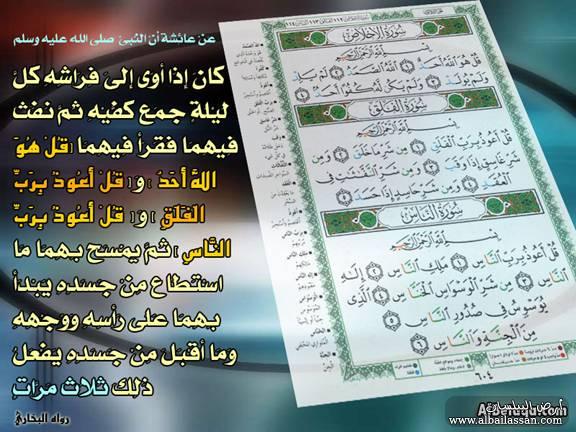 عن عائشة أن النبي صلى الله عليه وسلم
كان إذا أوى إلى فراشه كل
ليلة جمع كفيه ثم نفث
فيهما فقرأ فيهما { قل هو
الله أحد } و { قل أعوذ برب
الفلق } و { قل أعوذ برب
الناس } ثم يمسح بهما ما
استطاع من جسده يبدأ
بهما على رأسه ووجهه
وما أقبل من جسده يفعل
ذلك ثلاث مرات
رواه البخاري
سُورَةُ الإِخْلَاصِ
بِسْمِ اللَّهِ الرَّحْمَٰنِ الرَّحِيمِ
قُلْ هُوَ اللَّهُ أَحَدٌ ١ اللَّهُ الصَّمَدُ ٢ لَمْ يَلِدْ
وَلَمْ يُولَدْ ٣ وَلَمْ يَكُن لَّهُ كُفُوًا أَحَدٌ ٤
سُورَةُ الْفَلَقِ
بِسْمِ اللَّهِ الرَّحْمَٰنِ الرَّحِيمِ
قُلْ أَعُوذُ بِرَبِّ الْفَلَقِ ١ مِن شَرِّ مَا خَلَقَ ٢ وَمِن
شَرِّ غَاسِقٍ إِذَا وَقَبَ ٣ وَمِن شَرِّ النَّفَّاثَاتِ فِي
الْعُقَدِ ٤ وَمِن شَرِّ حَاسِدٍ إِذَا حَسَدَ ٥
سُورَةُ النَّاسِ
بِسْمِ اللَّهِ الرَّحْمَٰنِ الرَّحِيمِ
قُلْ أَعُوذُ بِرَبِّ النَّاسِ ١ مَلِكِ النَّاسِ ٢ إِلَٰهِ
النَّاسِ ٣ مِن شَرِّ الْوَسْوَاسِ الْخَنَّاسِ ٤ الَّذِي
يُوَسْوِسُ فِي صُدُورِ النَّاسِ ٥
مِنَ الْجِنَّةِ وَالنَّاسِ ٦
٦٠٤
AlBetaqa.com
www.albailassan.com